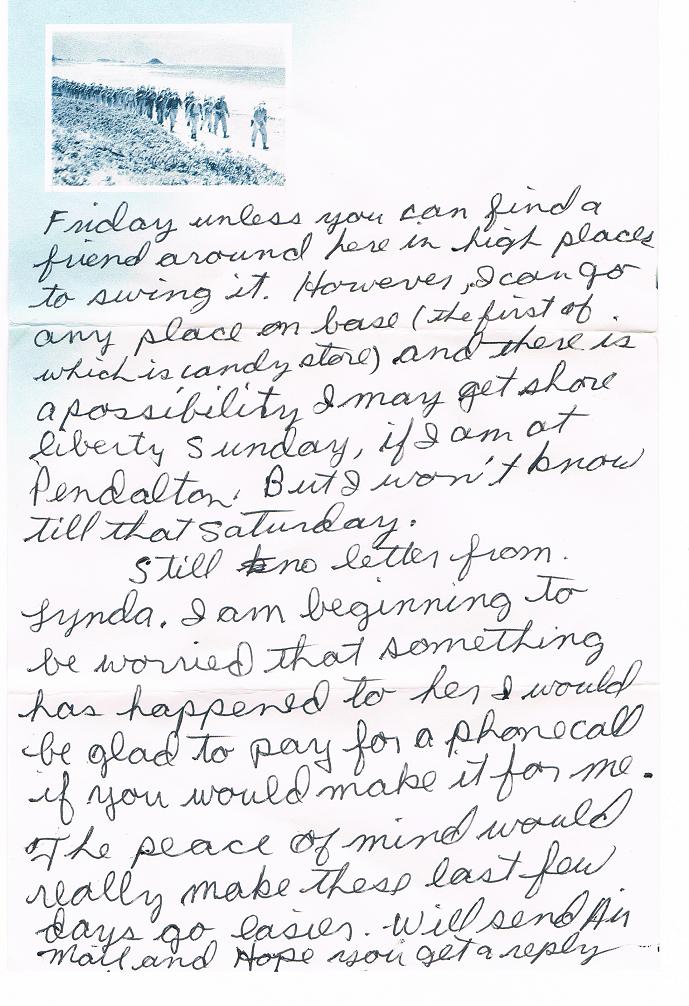 Friday unless you can find a
friend around here in high places
to swing it. However, I can go
any place on base (the first of
which is candy store) and there is
a possibility I may get shore
liberty Sunday, if I am at
Pendalton. But I won't know
till that Saturday.
Still no letter from
Lynda. I am beginning to
be worried that something
has happened to her I would
be glad to pay for a phonecall
if you would make it for me.
The peace of mind would
really make these last few
days go easier. Will send Air
Mail and Hope you get a reply